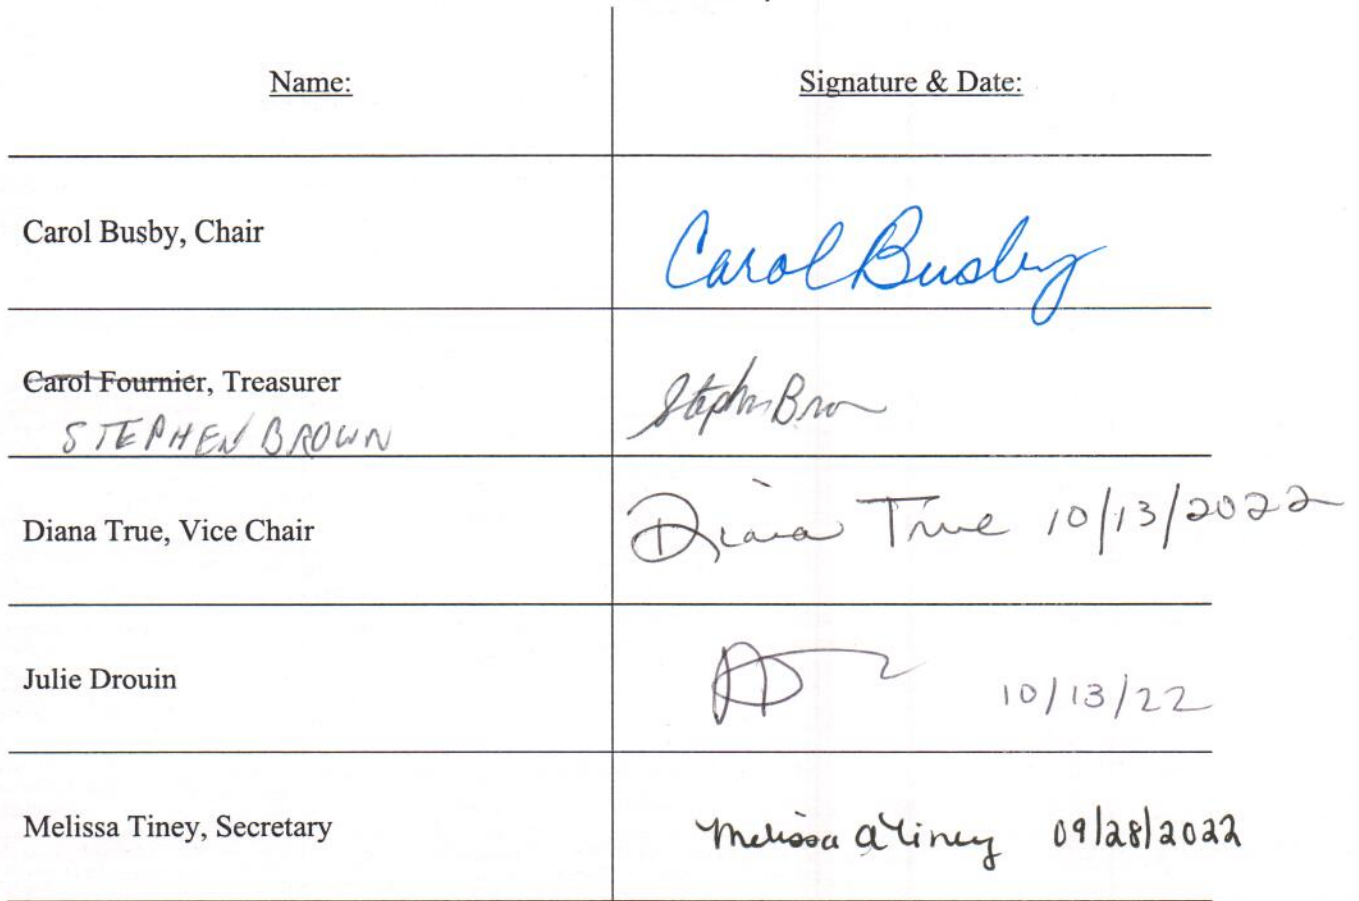 Name: Signature & Date:
Carol Busby, Chair Carol Busby
Carol Fournier, Treasurer Stephen Brown
STEPHEN BROWN
Diana True, Vice Chair Diana True 10/13/2022
Julie Drouin 10/13/22
Melissa Tiney, Secretary Melissa A Tiney 09/28/2022